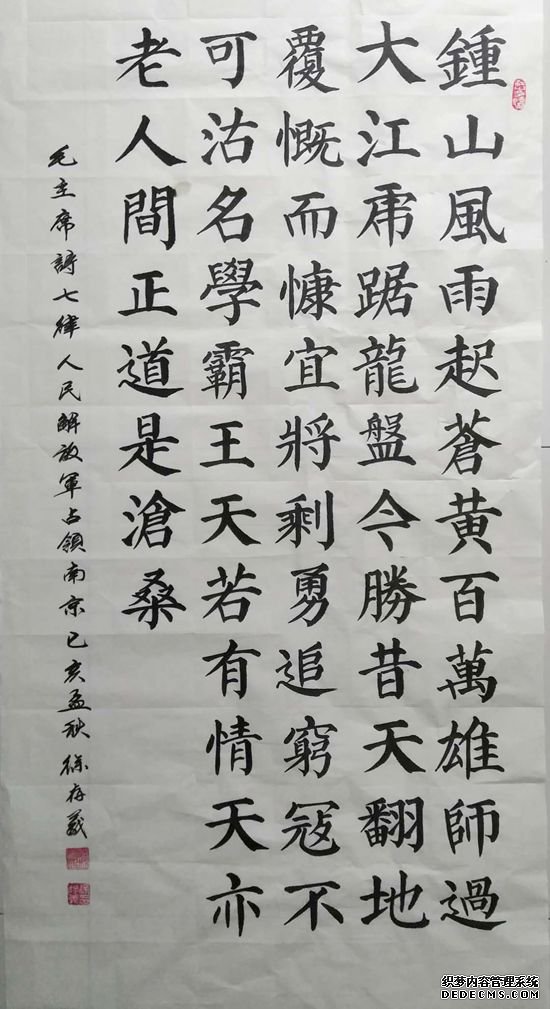 鍾山風雨起蒼黄百萬雄師過
大江虎踞龍盤今勝昔天翻地
覆慨而慷宜將剩勇追窮寇不
可沽名學霸王天若有情天亦
老人間正道是滄桑
毛主席詩七律人民解放軍占領南京己亥孟秋徐存義
织梦内容管理系统
DEDECMS.COM